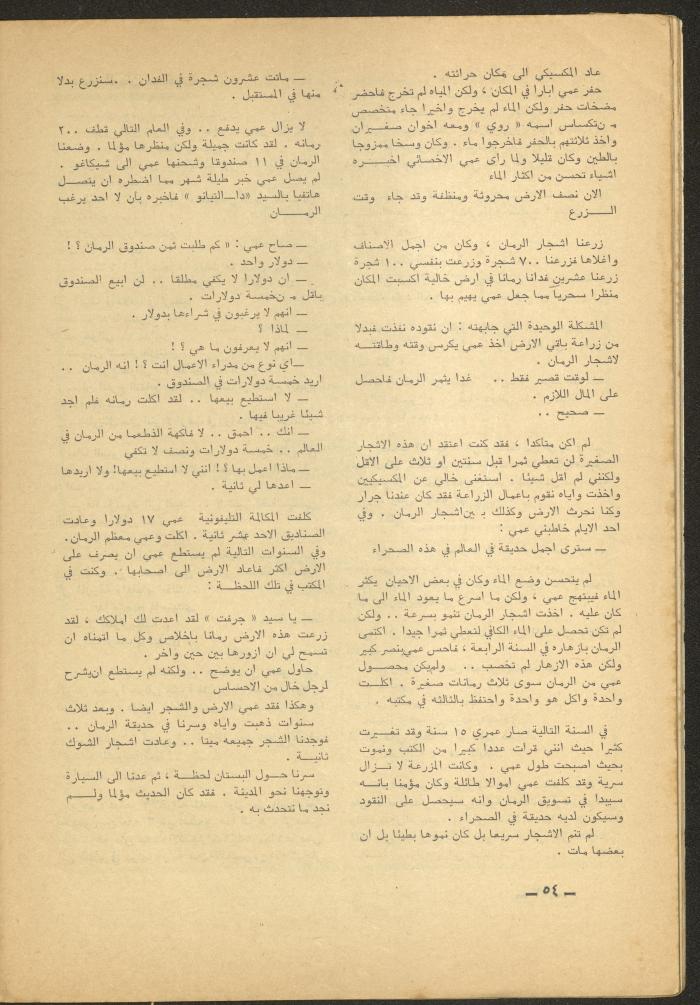 عاد المكسيكي الى مكان حراثته .
حفر عمي ابارا في المكان ، ولكن المياه لم تخرج فاحضر
مضخات حفر ولكن الماء لم يخرج واخيرا جاء متخصص
من تكساس اسمه « روي » ومعه اخوان صغيران
واخذ ثلاثتهم بالحفر فاخرجوا ماء . وكان وسخا ممزوجا
بالطين وكان قليلا ولما رأى عمي الاخصائي اخبره
اشياء تحسن من اكثار الماء
الان نصف الارض محروثة ومنظفة وقد جاء وقت
الزرع
زرعنا اشجار الرمان ، وكان من اجمل الاصناف
واغلاها فزرعنا ٧٠٠ شجرة وزرعت بنفسي ١٠٠ شجرة
زرعنا عشرين فدانا رمانا في ارض خالية اكسبت المكان
منظرا سحرياً مما جعل عمي يهيم بها .
المشكلة الوحيدة التي جابهته : ان نقوده نفذت فبدلا
من زراعة باقي الارض اخذ عمي يكرس وقته وطاقته
لاشجار الرمان .
— لوقت قصير فقط .. غدا يثمر الرمان فاحصل
على المال اللازم .
— صحيح ..
لم اكن متأكدا ، فقد كنت اعتقد ان هذه الاشجار
الصغيرة لن تعطي ثمرا قبل سنتين او ثلاث على الاقل
ولكنني لم اقل شيئا . استغنى خالي عن المكسيكيين
واخذت واياه نقوم باعمال الزراعة فقد كان عندنا جرار
وكنا نحرث الارض وكذلك بين اشجار الرمان . وفي
احد الايام خاطبني عمي :
— سترى اجمل حديقة في العالم في هذه الصحراء
لم يتحسن وضع الماء وكان في بعض الاحيان يكثر
الماء فيبتهج عمي ، ولكن ما اسرع ما يعود الماء الى ما
كان عليه . اخذت اشجار الرمان تنمو بسرعة .. ولكن
لم تكن تحصل على الماء الكافي لتعطي ثمرا جيدا . اكتسى
الرمان بازهاره في السنة الرابعة ، فاحس عمي بنصر كبير
ولكن هذه الازهار لم تخصب .. ولم يكن محصول
عمي من الرمان سوى ثلاث رمانات صغيرة . اكلت
واحدة واكل هو واحدة واحتفظ بالثالثه في مكتبه .
في السنة التالية صار عمري ١٥ سنة وقد تغيرت
كثيرا حيث انني قرات عددا كبيرا من الكتب ونموت
بحيث اصبحت طول عمي . وكانت المزرعة لا تزال
سرية وقد كلفت عمي اموالا طائلة وكان مؤمنا بانه
سيبدا في تسويق الرمان وانه سيحصل على النقود
وسيكون لديه حديقة في الصحراء .
لم تنم الاشجار سريعا بل كان نموها بطيئا بل ان
بعضها مات .
— ماتت عشرون شجرة في الفدان . .سنزرع بدلا
منها في المستقبل .
لا يزال عمي يدفع .. وفي العام التالي قطف ٢٠٠
رمانه . لقد كانت جميلة ولكن منظرها مؤلما . وضعنا
الرمان في ١١ صندوقا وشحنها عمي الى شيكاغو .
لم يصل عمي خبر طيلة شهر مما اضطره ان يتصل
هاتفيا بالسيد «دا—التيانو » فاخبره بان لا احد يرغب
الرمان
— صاح عمي : « كم طلبت ثمن صندوق الرمان ؟ !
— دولار واحد .
— ان دولارا لا يكفي مطلقا .. لن ابيع الصندوق
باقل من خمسة دولارات .
— انهم لا يرغبون في شراءها بدولار .
— لماذا ؟
— انهم لا يعرفون ما هي ؟ !
—اي نوع من مدراء الاعمال انت ؟ ! انه الرمان ..
اريد خمسة دولارات في الصندوق .
— لا استطيع بيعها .. لقد اكلت رمانه فلم اجد
شيئا غريبا فيها .
— انك .. احمق .. لا فاكهة الذ طعما من الرمان في
العالم .. خمسة دولارات ونصف لا تكفي
— ماذا اعمل بها ؟ ! انني لا استطيع بيعها! ولا اريدها
— اعدها لي ثانية .
كلفت المكالمة التليفونية عمي ١٧ دولارا وعادت
الصناديق الاحد عشر ثانية . اكلت وعمي معظم الرمان.
وفي السنوات التالية لم يستطع عمي ان يصرف على
الارض اكثر فاعاد الارض الى اصحابها . وكنت في
المكتب في تلك اللحظة :
— يا سيد « جرفت » لقد اعدت لك املاكك ، لقد
زرعت هذه الارض رمانا باخلاص وكل ما اتمناه ان
تسمح لي ان ازورها بين حين واخر .
حاول عمي ان يوضح .. ولكنه لم يستطع ان يشرح
لرجل خال من الاحساس
وهكذا فقد عمي الارض والشجر ايضا . وبعد ثلاث
سنوات ذهبت واياه وسرنا في حديقة الرمان ..
فوجدنا الشجر جميعه ميتا .. وعادت اشجار الشوك
ثانية .
سرنا حول البستان لحظة ، ثم عدنا الى السيارة
وتوجهنا نحو المدينة . فقد كان الحديث مؤلما ولم
نجد ما نتحدث به .
— ٥٤ —